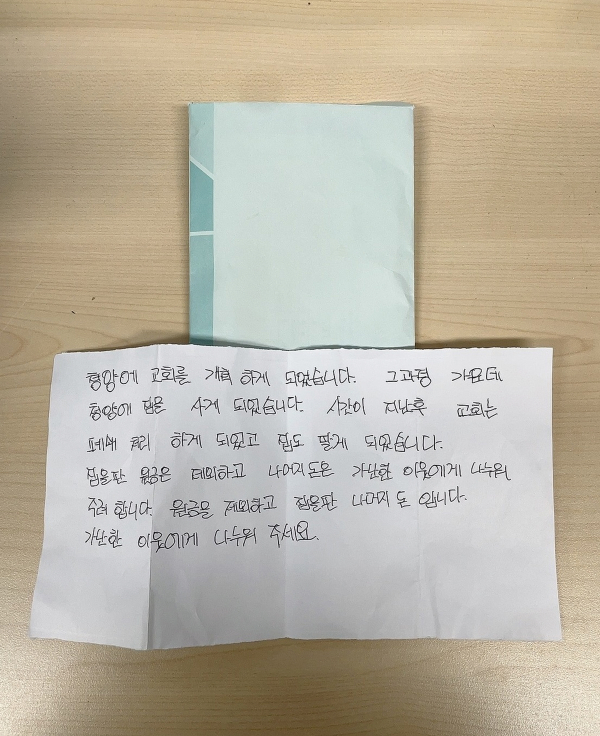 청양에 교회를 개척 하게 되었습니다. 그과정 가운데
청양에 집을 사게 되었습니다. 시간이 지난후 교회는
폐쇄 처리 하게 되었고 집도 팔게 되었습니다.
집을판 원금은 제외하고 나머지돈은 가난한 이웃에게 나누워
주려 합니다. 원금을 제외하고 집을판 나머지 돈 입니다.
가난한 이웃에게 나누워 주세요.